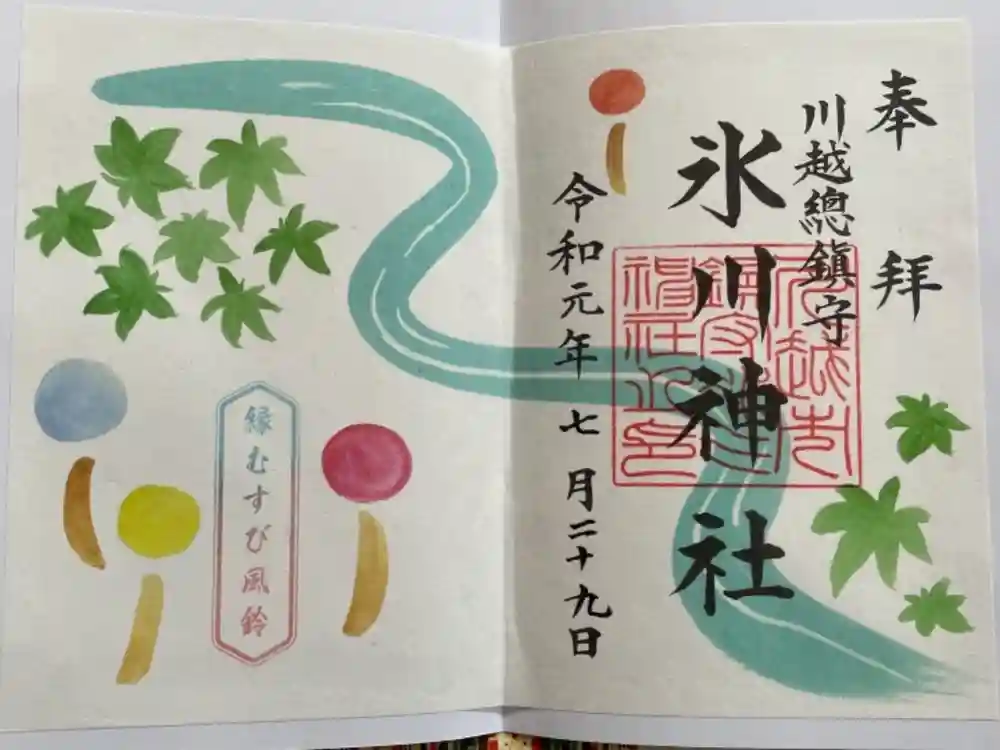 奉拝
川越總鎮守
氷川神社
令和元年七月二十九日
縁むすび風鈴